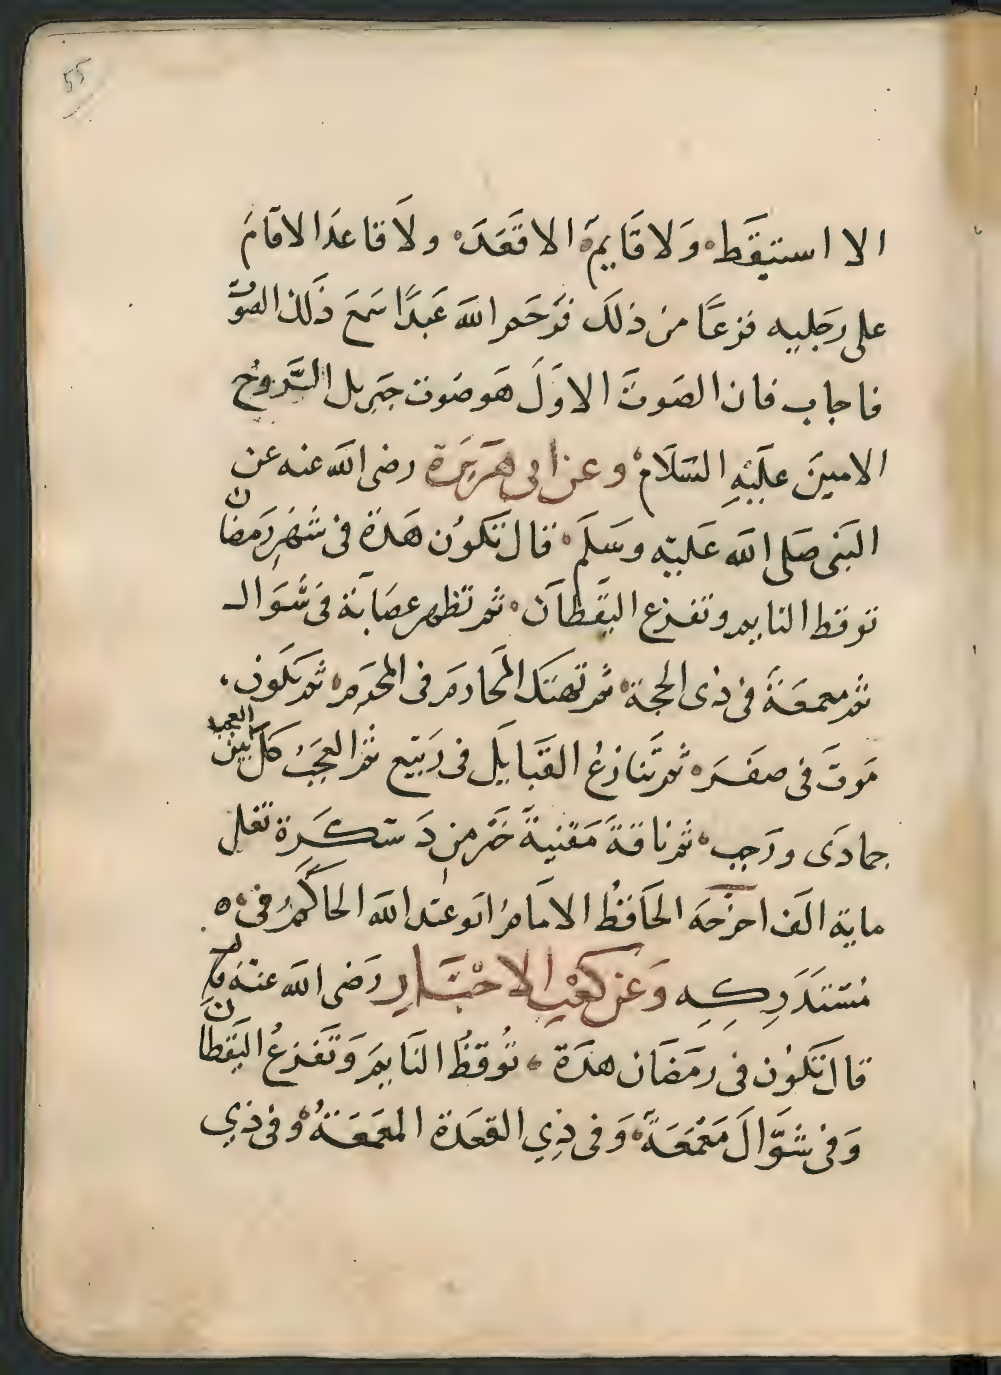 55
الا استيقظ ولا قايمة الا قعد ولا قاعد الا قام
على رجليه فزعا من ذلك فرحم الله عبدا سمع ذلك الصوت
فاجاب فان الصوت الاول هو صوت جبريل الروح
الامين عليه السلام وعن ابي هريرة رضى الله عنه عن
النبى صلى الله عليه وسلم قال تكون هدة فى شهر رمضان
توقظ النايم وتفزع اليقظان ثم تظهر عصابة فى شوال
ثم معمعة فى ذى الحجة ثم تهتك المحارم فى المحرم ثم تكون
موت فى صفر ثم تنازع القبايل فى ربيع ثم العجب كل العجب بين
جمادى ورجب ثم ناقة مقتبة خير من دسكرة تغل
ماية الف اخرجه الحافظ الامام ابو عبد الله الحاكم فى
مستدركه وعن كعب الاحبار رضى الله عنه
قال تكون فى رمضان هدة توقظ النايم وتفزع اليقظان
وفى شوال معمعة وفى ذي القعدة المعمعة وفى ذي